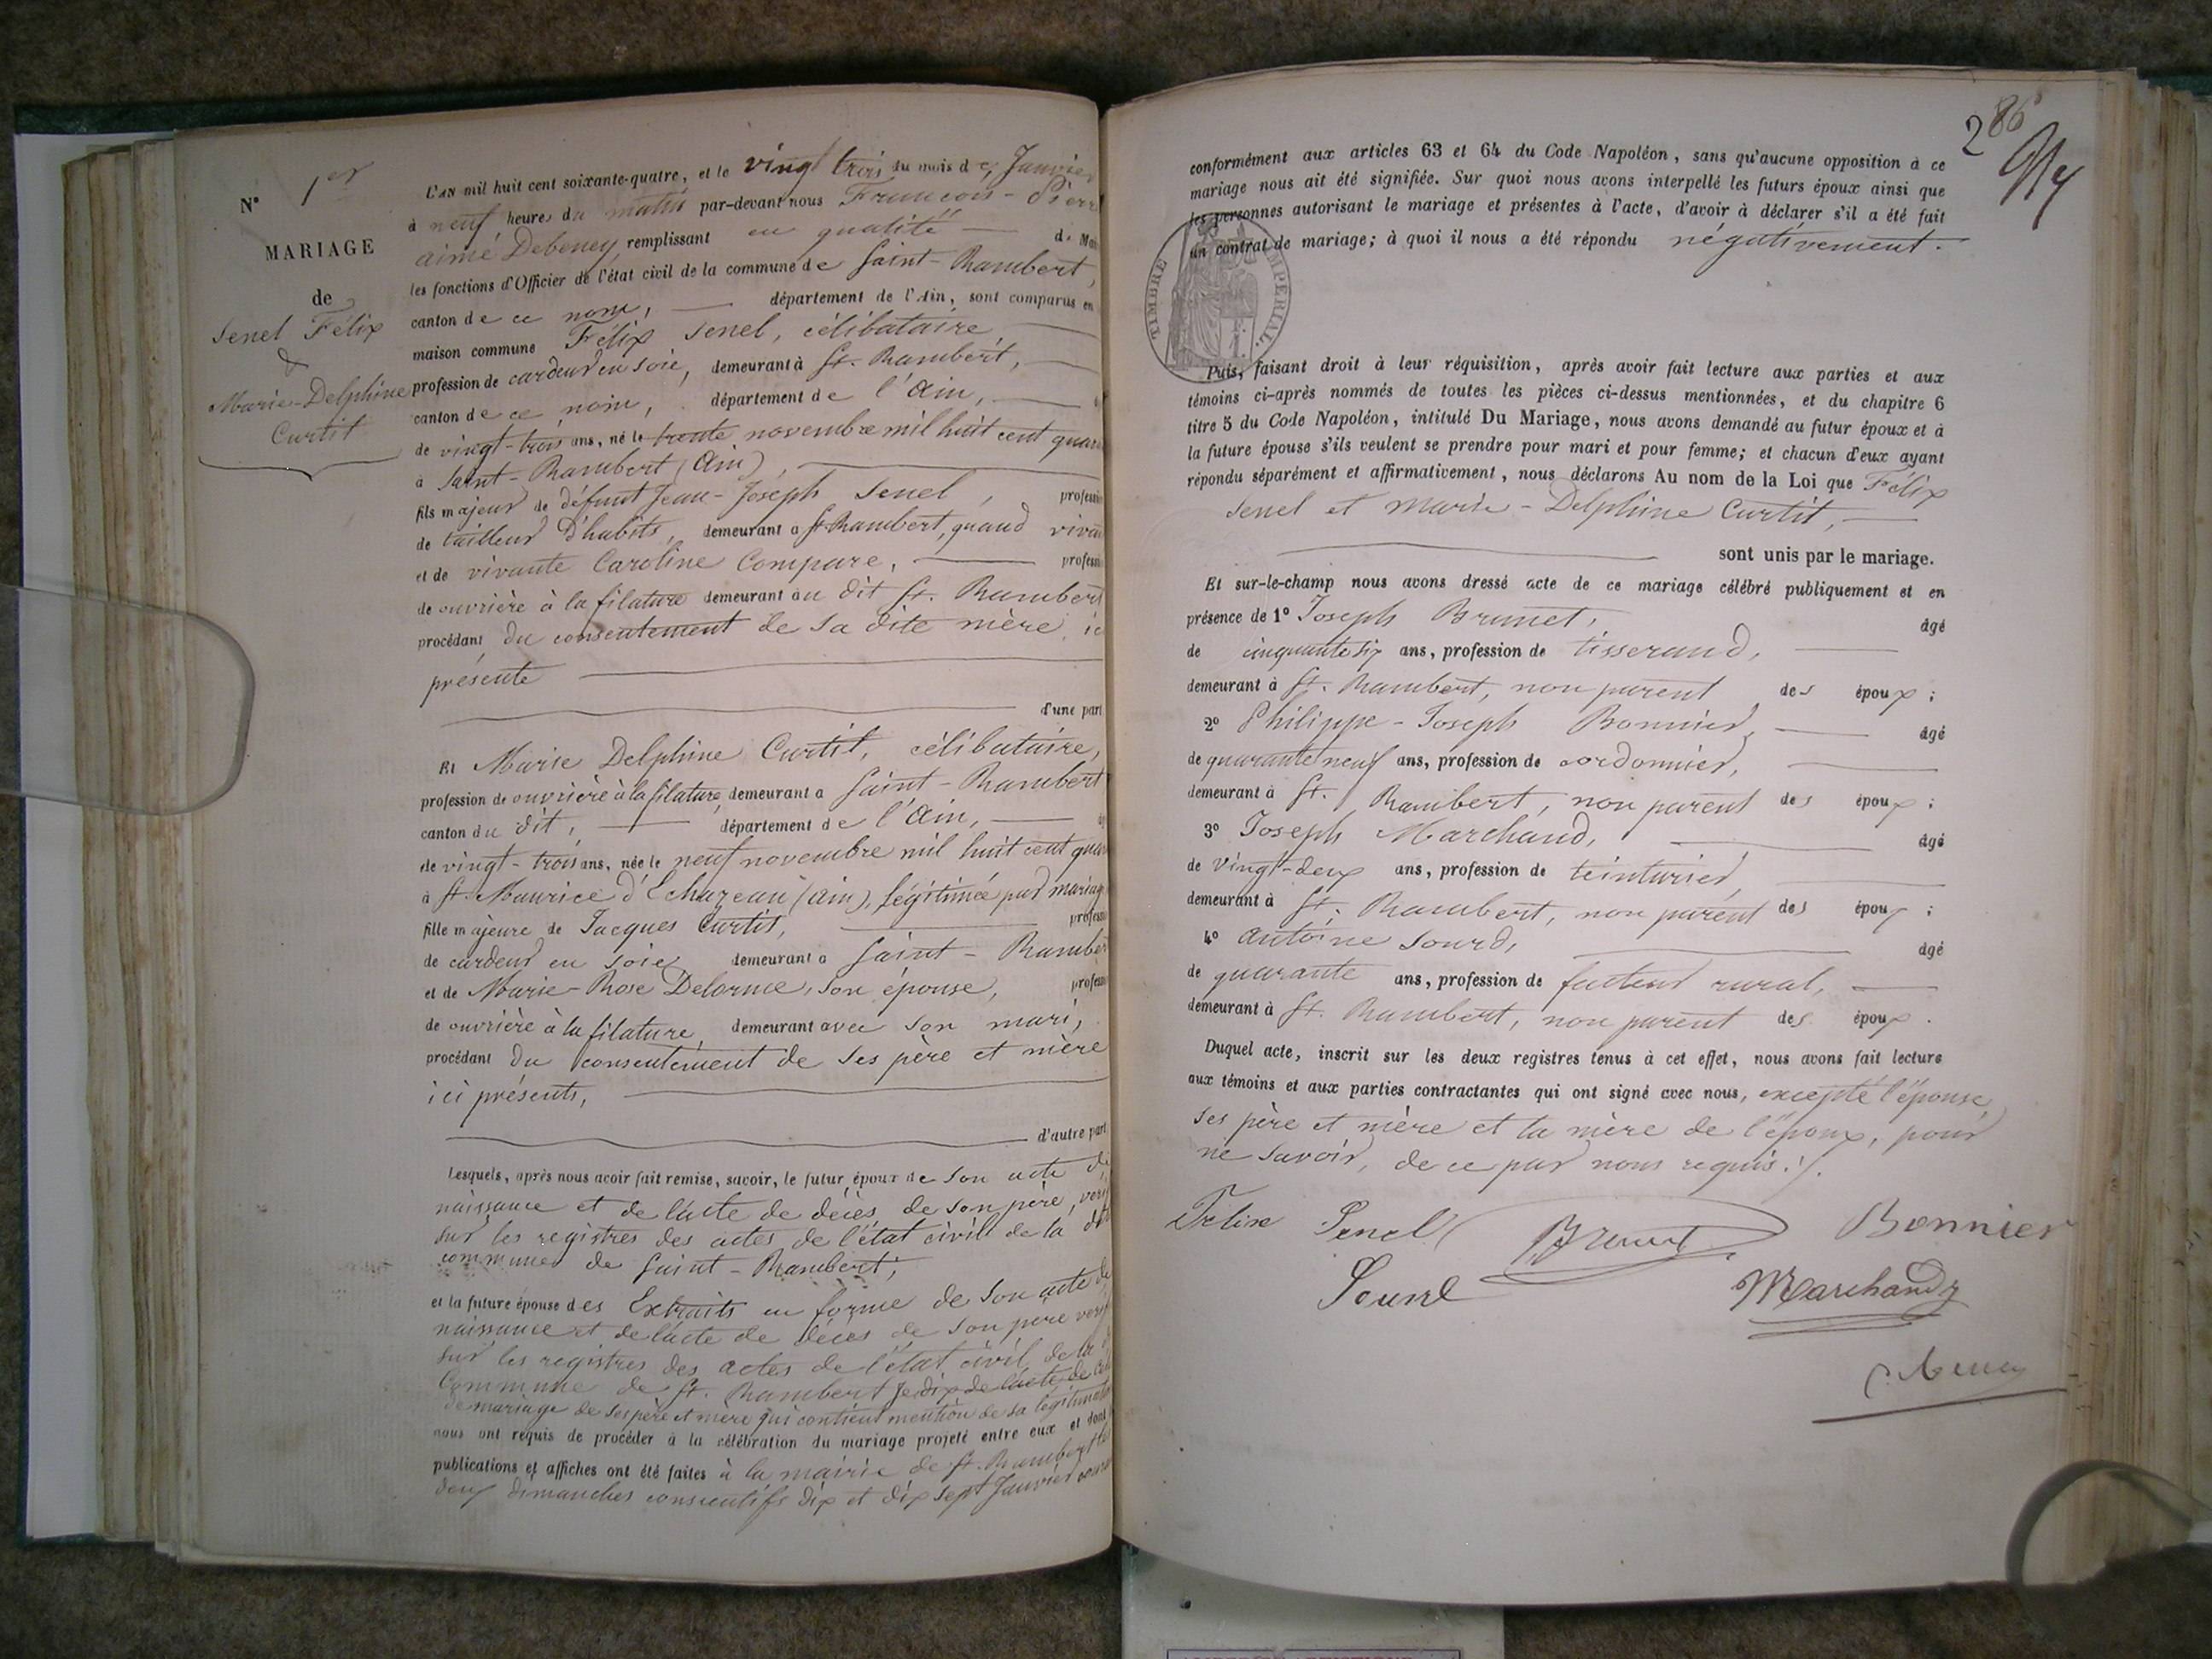 N° 1er
MARIAGE
de
Senel Félix
&
Marie-Delphine
Curtit
L'AN mil huit cent soixante-quatre, et le vingt trois du mois de Janvier
à neuf heures du matin par-devant nous François-Pierre
aimé Debeney, remplissant en qualité de Mai
les fonctions d'Officier de l'état civil de la commune de Saint-Rambert,
canton de ce nom, département de l'Ain, sont comparus en
maison commune Félix Senel, célibataire
profession de cardeur en soie, demeurant à St. Rambert,
canton de ce nom, département de l'Ain,
de vingt-trois ans, né le trente novembre mil huit cent quara
à Saint-Rambert (Ain),
fils majeur de défunt Jean-Joseph Senel, profession
de tailleur d'habits, demeurant à St Rambert, quand vivait
et de vivante Caroline Compare, profession
de ouvrière à la filature demeurant au dit St. Rambert
procédant du consentement de sa dite mère, ici
présente
d'une part
Et Marie Delphine Curtit, célibataire,
profession de ouvrière à la filature, demeurant à Saint-Rambert
canton du dit, département de l'Ain,
de vingt-trois ans, née le neuf novembre mil huit cent quar
à St. Maurice d'Echazeau (Ain), légitimée par mariage
fille majeure de Jacques Curtit, profession
de cardeur en soie, demeurant à Saint-Rambert
et de Marie-Rose Delorme, son épouse, profession
de ouvrière à la filature, demeurant avec son mari,
procédant du consentement de ses père et mère
ici présents,
d'autre part
Lesquels, après nous avoir fait remise, savoir, le futur époux de son acte de
naissance et de l'acte de décès de son père, verif
sur les registres des actes de l'état civil de la dite
commune de Saint-Rambert;
et la future épouse des Extraits en forme de son acte de
naissance et de l'acte de décès de son père verif
sur les registres des actes de l'état civil de la
Commune de St. Rambert de l'acte de
de mariage de ses père et mère qui contient mention de sa légitimation
nous ont requis de procéder à la célébration du mariage projeté entre eux et dont
publications et affiches ont été faites à la mairie de St. Rambert les
deux dimanches consécutifs dix et dix sept Janvier courant
286
conformément aux articles 63 et 64 du Code Napoléon, sans qu'aucune opposition à ce
mariage nous ait été signifiée. Sur quoi nous avons interpellé les futurs époux ainsi que
les personnes autorisant le mariage et présentes à l'acte, d'avoir à déclarer s'il a été fait
un contrat de mariage; à quoi il nous a été répondu négativement.
TIMBRE IMPÉRIAL.
Puis, faisant droit à leur réquisition, après avoir fait lecture aux parties et aux
témoins ci-après nommés de toutes les pièces ci-dessus mentionnées, et du chapitre 6
titre 5 du Code Napoléon, intitulé Du Mariage, nous avons demandé au futur époux et à
la future épouse s'ils veulent se prendre pour mari et pour femme; et chacun d'eux ayant
répondu séparément et affirmativement, nous déclarons Au nom de la Loi que Félix
Senel et Marie-Delphine Curtit,
sont unis par le mariage.
Et sur-le-champ nous avons dressé acte de ce mariage célébré publiquement et en
présence de 1° Joseph Brunet, âgé
de cinquante six ans, profession de tisserand,
demeurant à St. Rambert, non parent des époux;
2° Philippe-Joseph Bonnier, âgé
de quarante neuf ans, profession de cordonnier,
demeurant à St. Rambert, non parent des époux;
3° Joseph Marchand, âgé
de vingt-deux ans, profession de teinturier,
demeurant à St. Rambert, non parent des époux;
4° Antoine Sourd, âgé
de quarante ans, profession de facteur rural,
demeurant à St. Rambert, non parent des époux.
Duquel acte, inscrit sur les deux registres tenus à cet effet, nous avons fait lecture
aux témoins et aux parties contractantes qui ont signé avec nous, excepté l'épouse,
ses père et mère et la mère de l'époux, pour
ne savoir, de ce par nous requis./.
Félix Senel Brunet Bonnier
Sourd Marchand